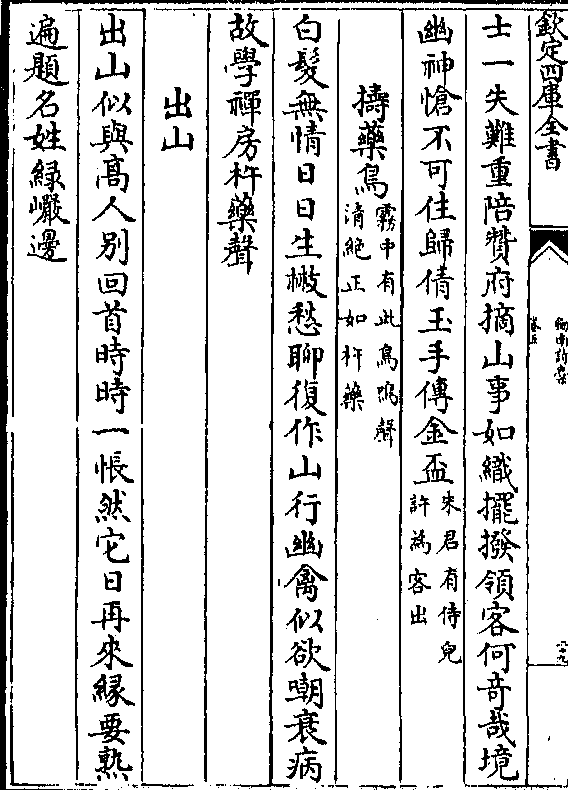 欽定四庫全書
劍南詩稾
卷五
士一失難重陪贊府摘山事如織擺撥領客何奇哉境
幽神愴不可住歸倩玉手傳金盃朱君有侍兒
許為客出
擣藥鳥霧中有此鳥鳴聲
清絶正如杵藥
白髮無情日日生撥愁聊復作山行幽禽似欲嘲衰病
故學禪房杵藥聲
出山
出山似與高人別回首時時一悵然它日再來緣要熟
遍題名姓緑巖邊